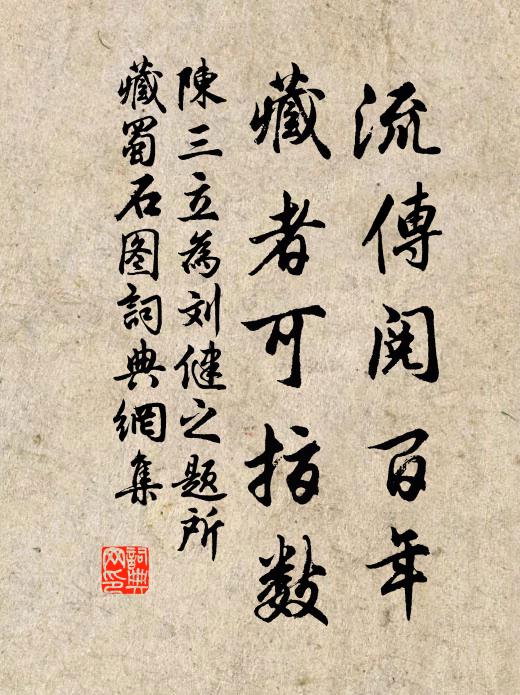 流傳閱百年
藏者可指數
陳三立為刘健之題所
藏蜀石图詞典網集
詞典网印